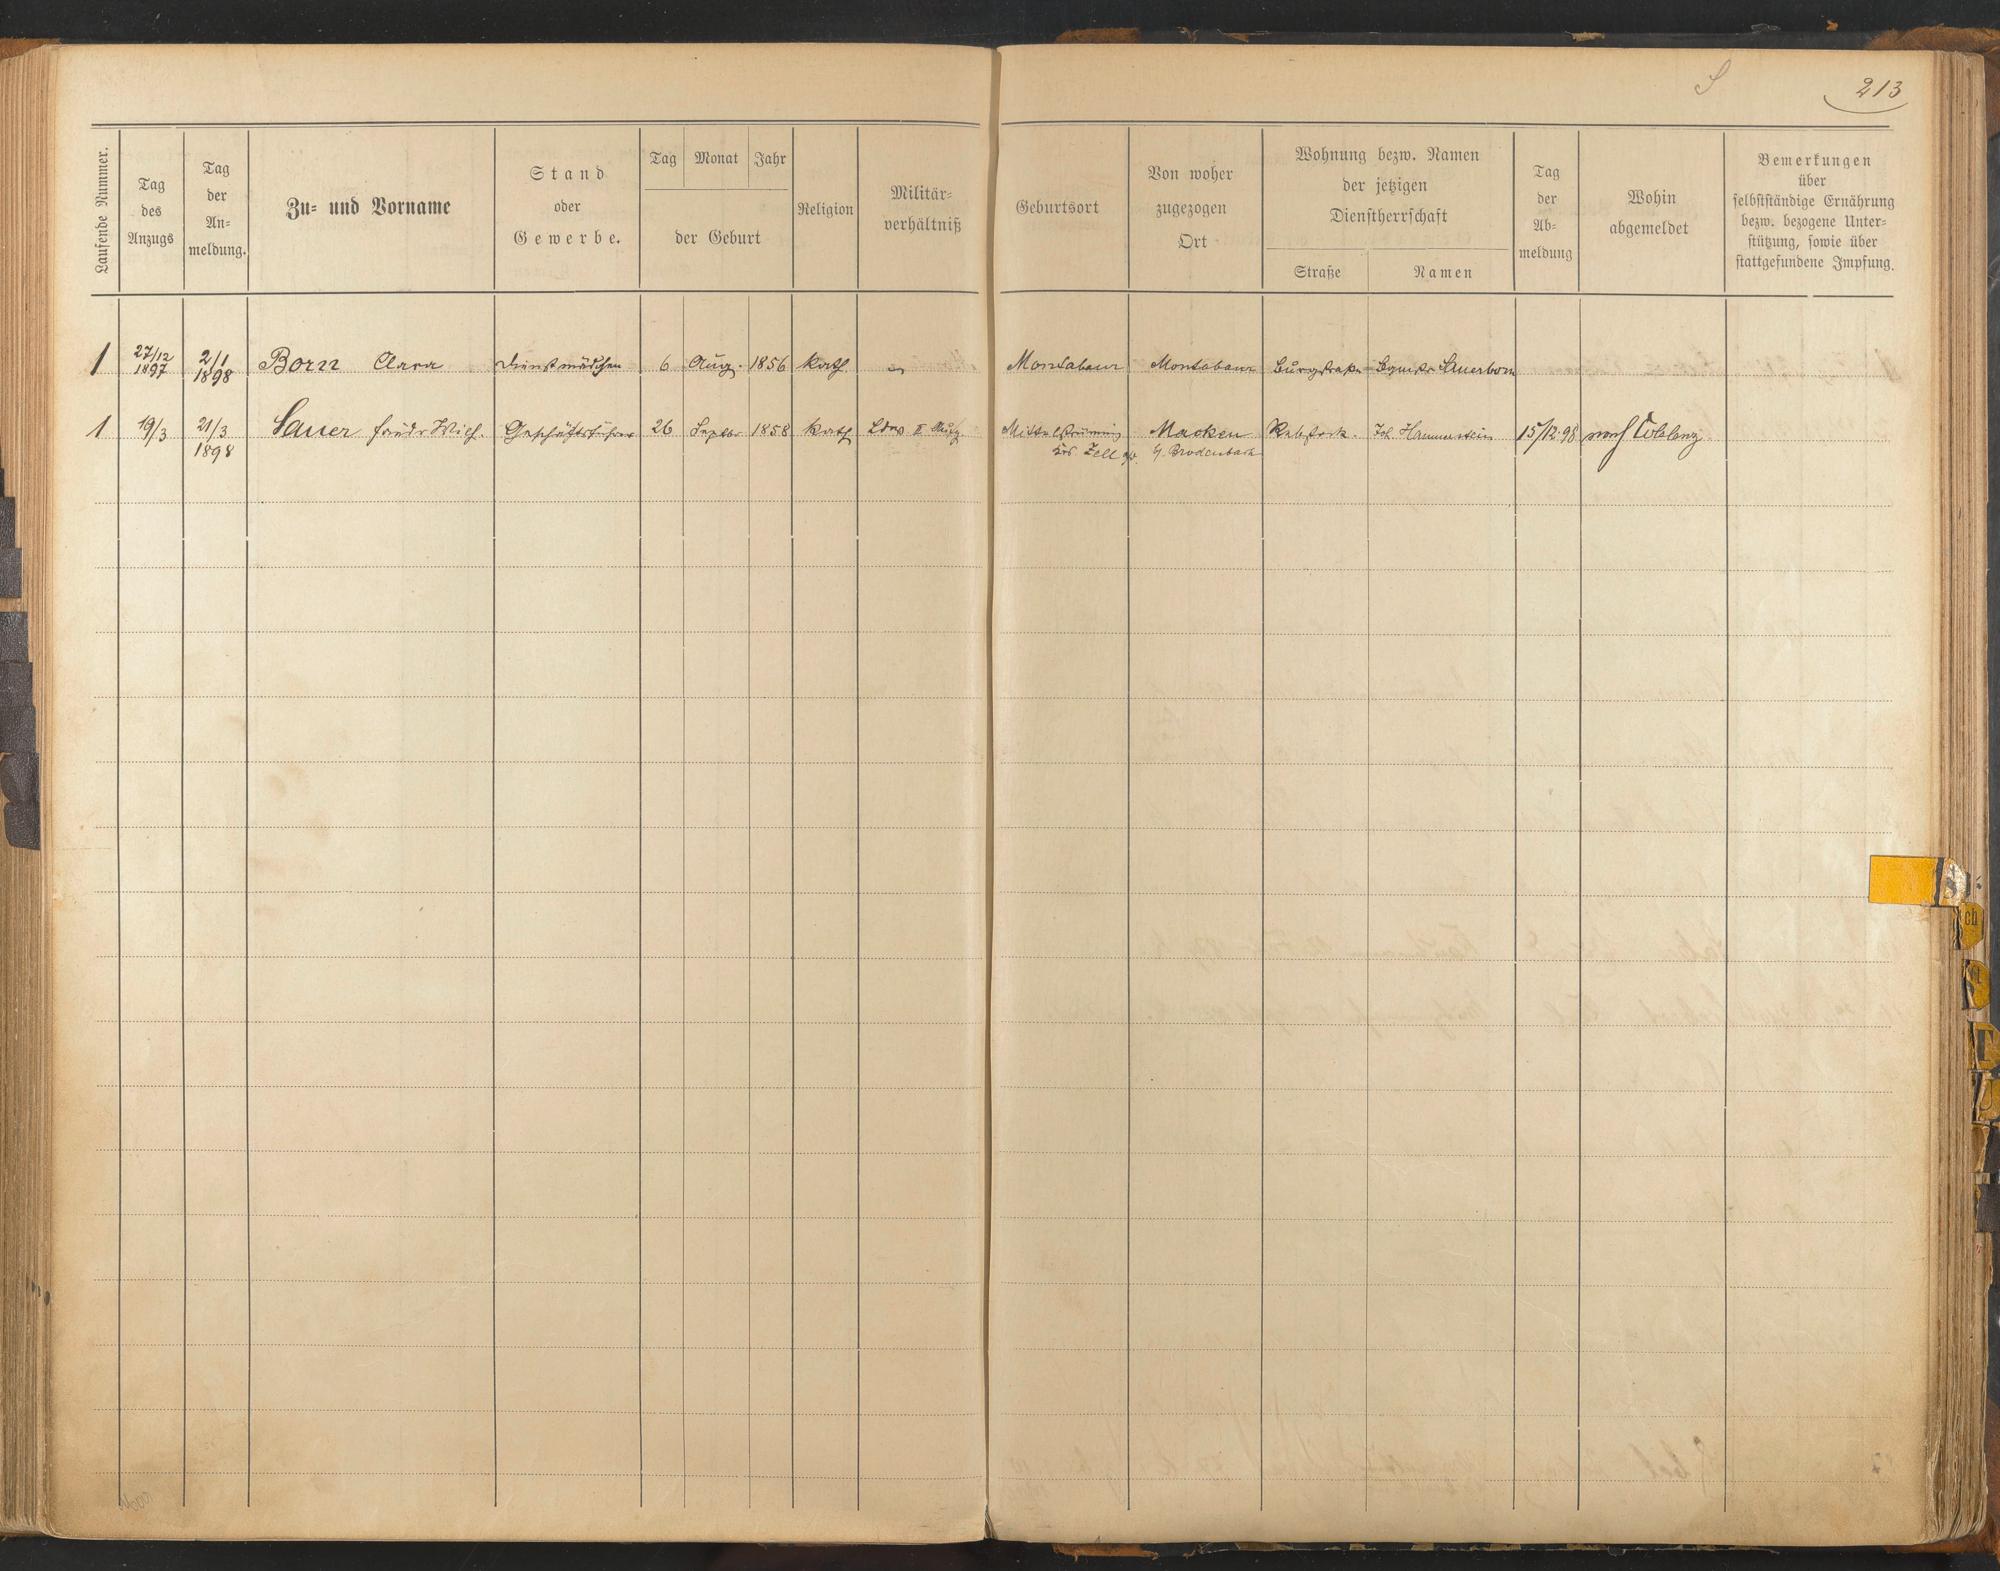 S 213
Laufende Nummer.
Tag des Anzugs
Tag der An-meldung.
Zu- und Vorname
Stand oder Gewerbe.
Tag Monat Jahr
der Geburt
Religion
Militär-verhältniß
Geburtsort
Von woher zugezogen Ort
Wohnung bezw. Namen der jetzigen Dienstherrschaft
Straße Namen
Tag der Ab-meldung
Wohin abgemeldet
Bemerkungen über selbstständige Ernährung bezw. bezogene Unter-stützung, sowie über stattgefundene Impfung.
1 27/12 1897 2/1 1898 Born Clara Dienstmädchen 6 Aug. 1856 kath. Montabaur Montabaur Burgstraße Sauerborn
1 19/3 21/3 1898 Sauer Geschäftsführer 26 Septbr 1858 kath II Mittelstrimmig Macken Rebstock. Joh. Hammerstein 15/12.98 nach Coblenz
Krs. Zell a/M. b/. Brodenbach